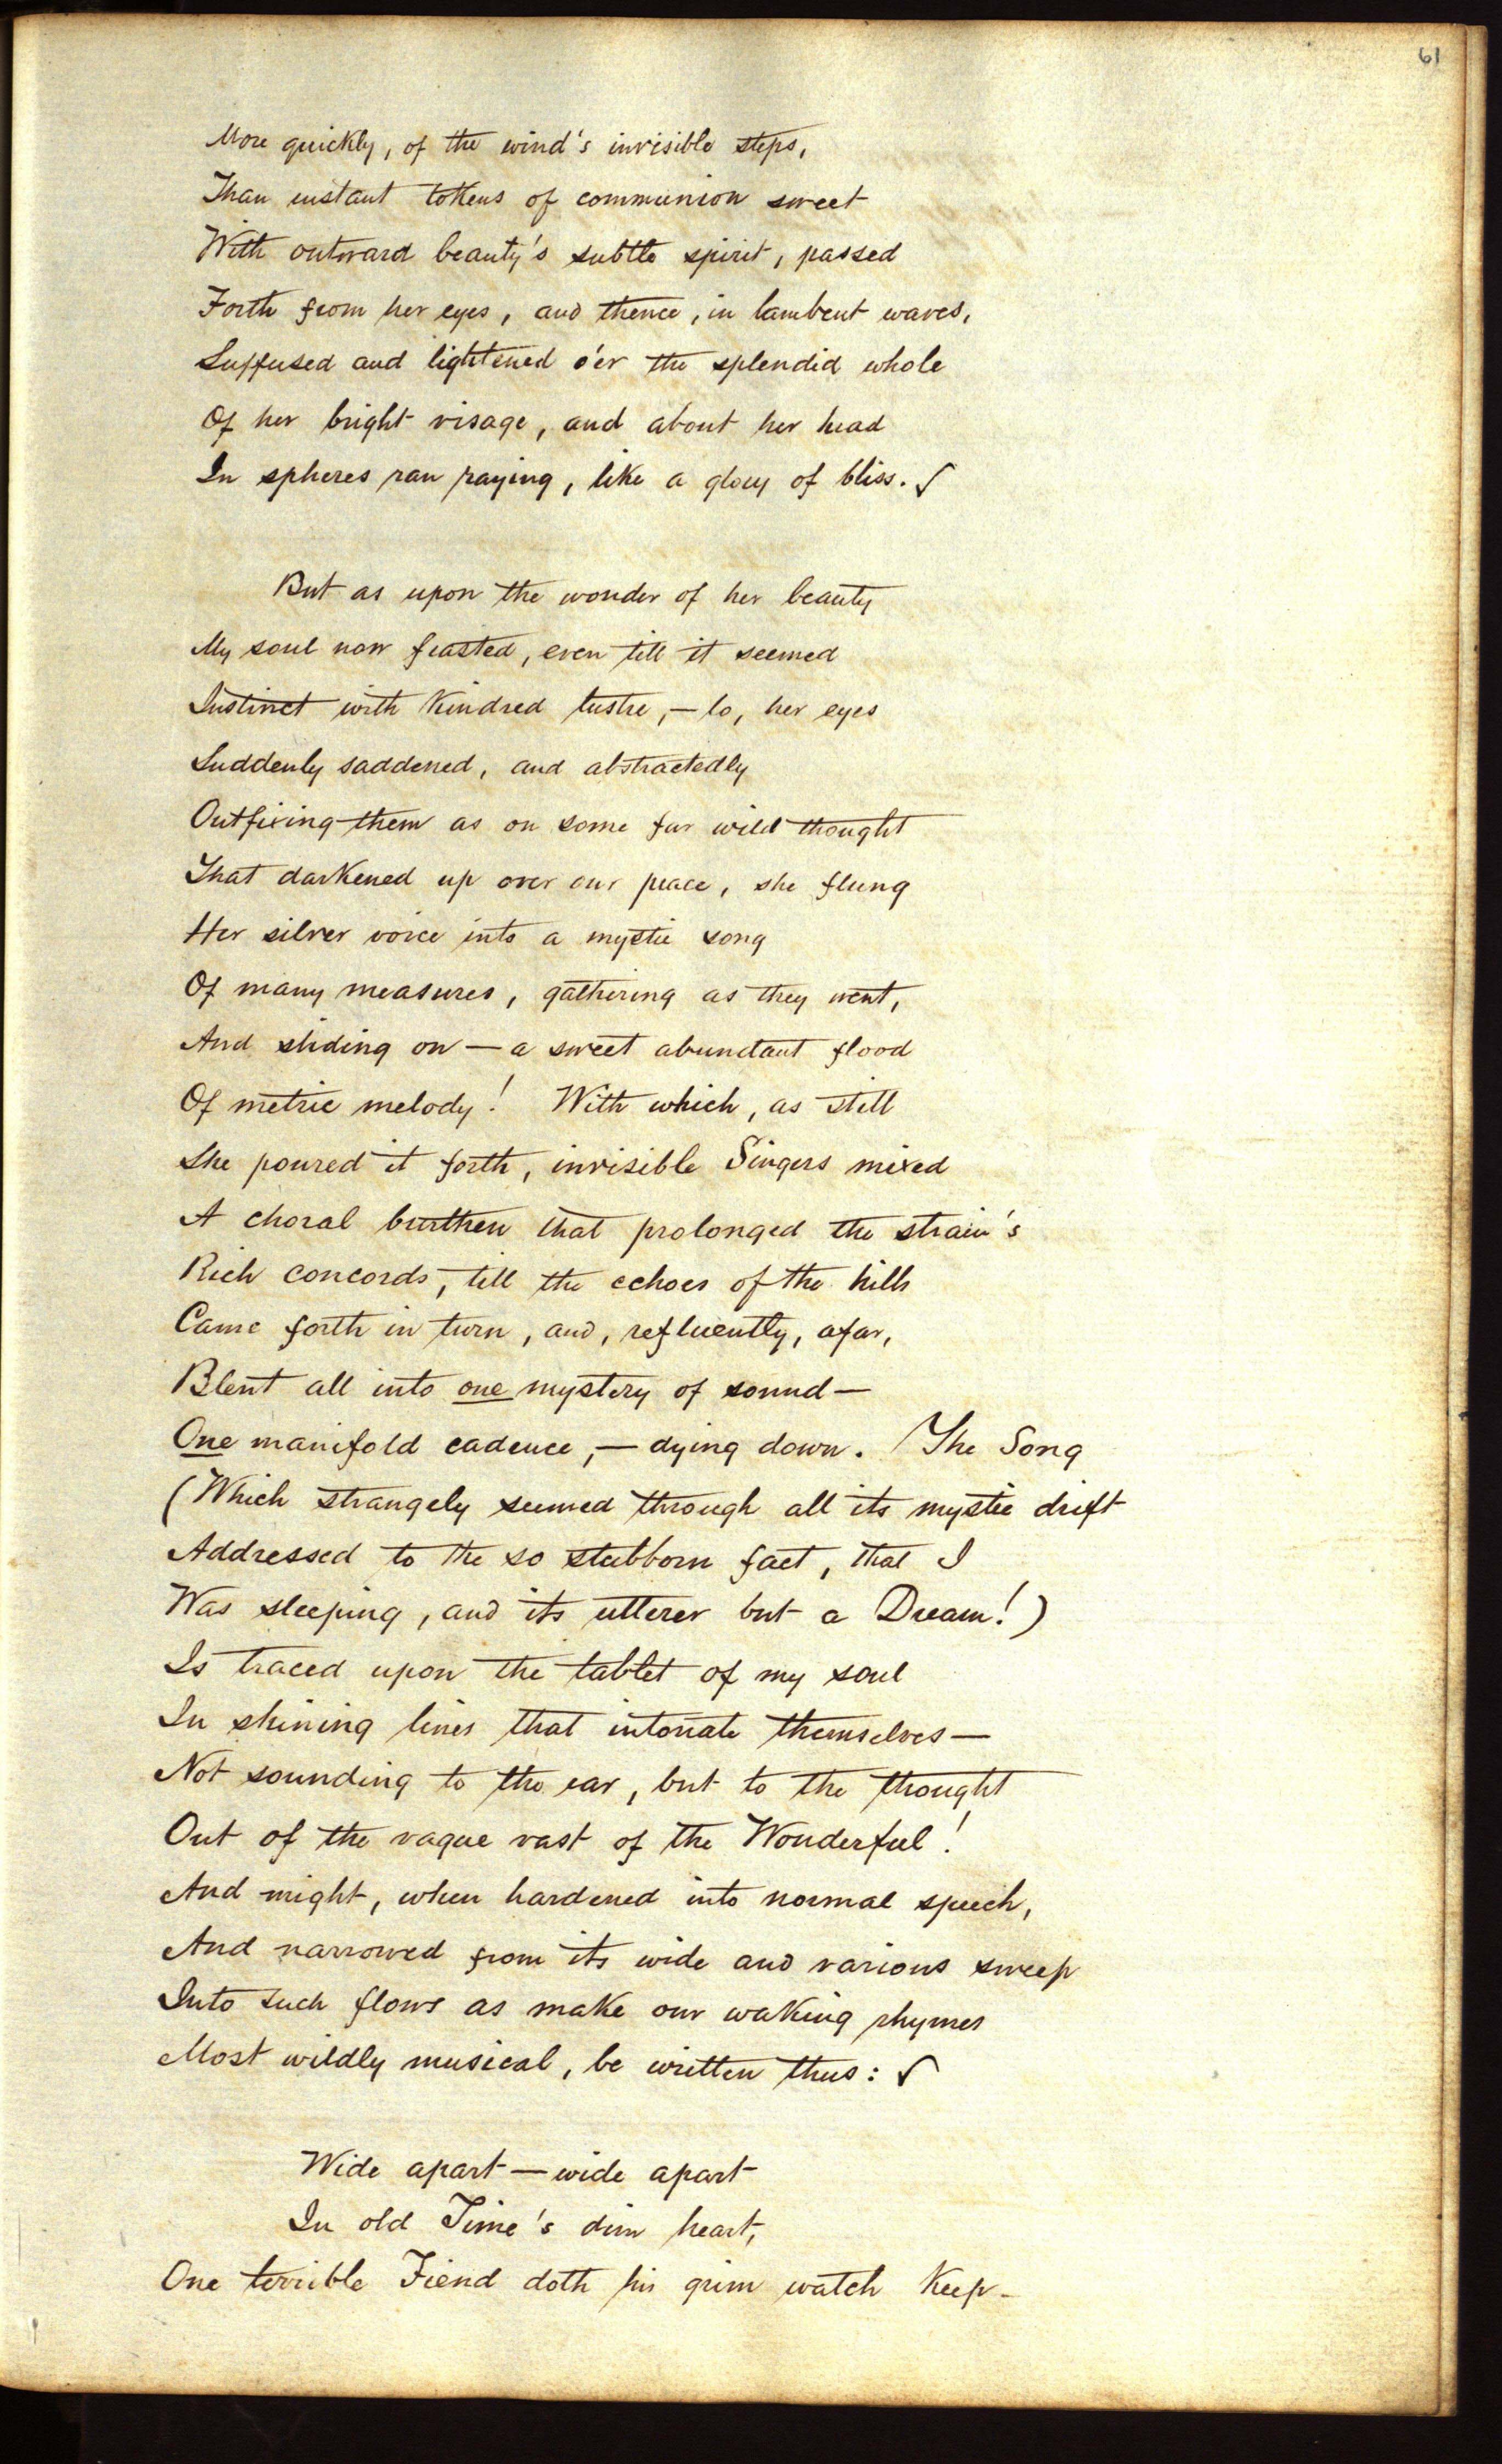 61
More quickly, of the wind's invisible steps,
Than instant tokens of communion sweet
With outward beauty's subtle spirit, passed
Forth from her eyes, and thence, in lambent waves,
Suffused and lightened o'er the splendid whole
Of her bright visage, and about her head
In spheres ran raying, like a glory of bliss.
But as upon the wonder of her beauty
My soul now feasted, even till it seemed
Instinct with kindred lustre,—lo, her eyes
Suddenly saddened, and abstractedly
Outfixing them as on some far wild thought
That darkened up over our peace, she flung
Her silver voice into a mystic song
Of many measures, gathering as they went,
And sliding on—a sweet abundant flood
Of metric melody! With which, as still
She poured it forth, invisible Singers mixed
A choral burthen that prolonged the strain's
Rich concords, till the echoes of the hills
Came forth in turn, and, refluently, afar,
Blent all into one mystery of sound—
One manifold cadence,—dying down. / The Song
(Which strangely seemed through all its mystic drift
Addressed to the so stubborn fact, that I
Was sleeping, and its utterer but a Dream!)
Is traced upon the tablet of my soul
In shining lines that intonate themselves—
Not sounding to the ear, but to the thought
Out of the vague vast of the Wonderful!
And might, when hardened into normal speech,
And narrowed from its wide and various sweep
Into such flows as make our waking rhymes
Most wildly musical, be written thus:
Wide apart—wide apart
In old Time's dim heart,
One terrible Fiend doth his grim watch keep—